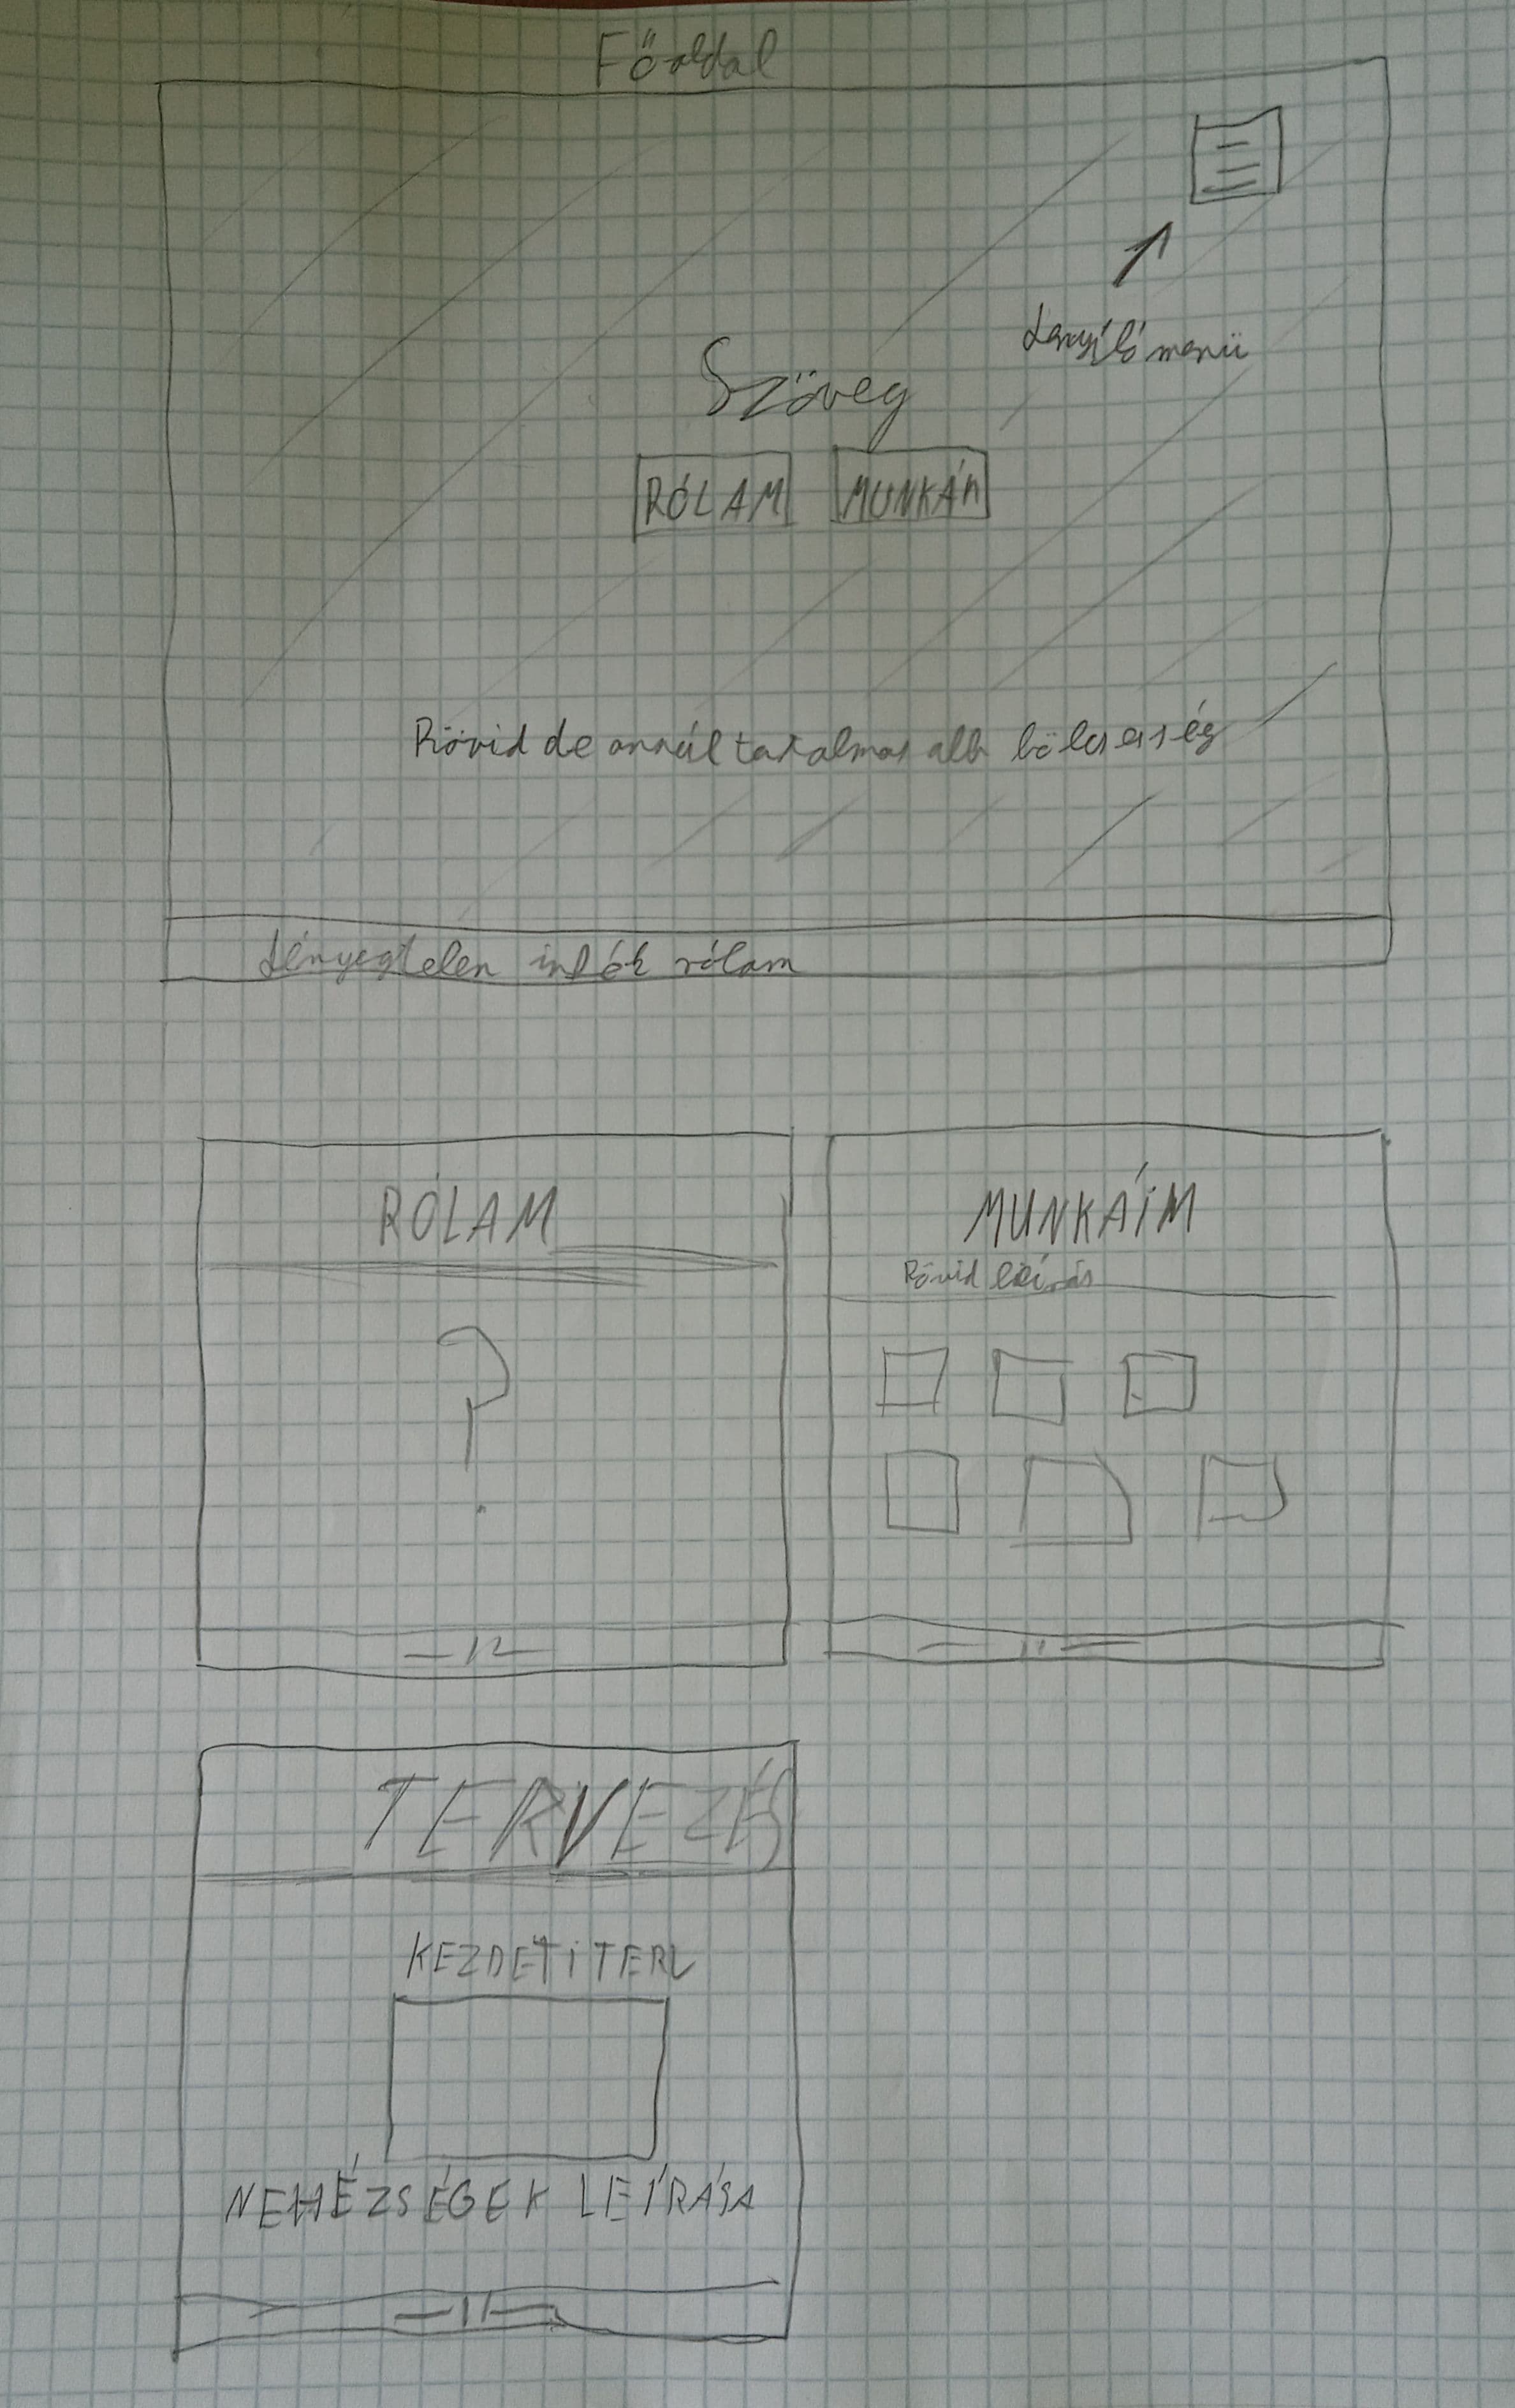 Főoldal
Lenyíló menü
Szöveg
RÓLAM MUNKÁM
Rövid de annál tartalmasabb bölcsesség
Lényegtelen infók rólam
RÓLAM
?
-11-
MUNKÁIM
Rövid leírás
-11-
TERVEZÉS
KEZDETI TERV
NEHÉZSÉGEK LEÍRÁSA
-11-